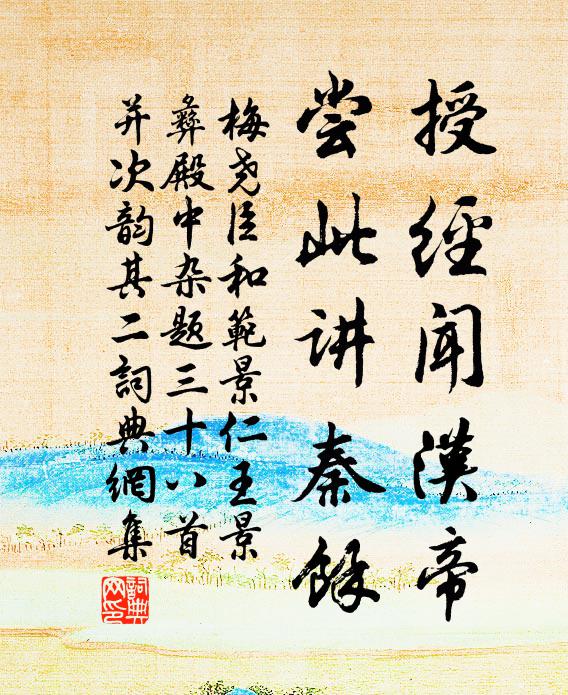 授經闻漢帝
尝此讲秦餘
梅尧臣和範景仁王景
彝殿中杂题三十八首
并次韵其二詞典網集
詞典网印